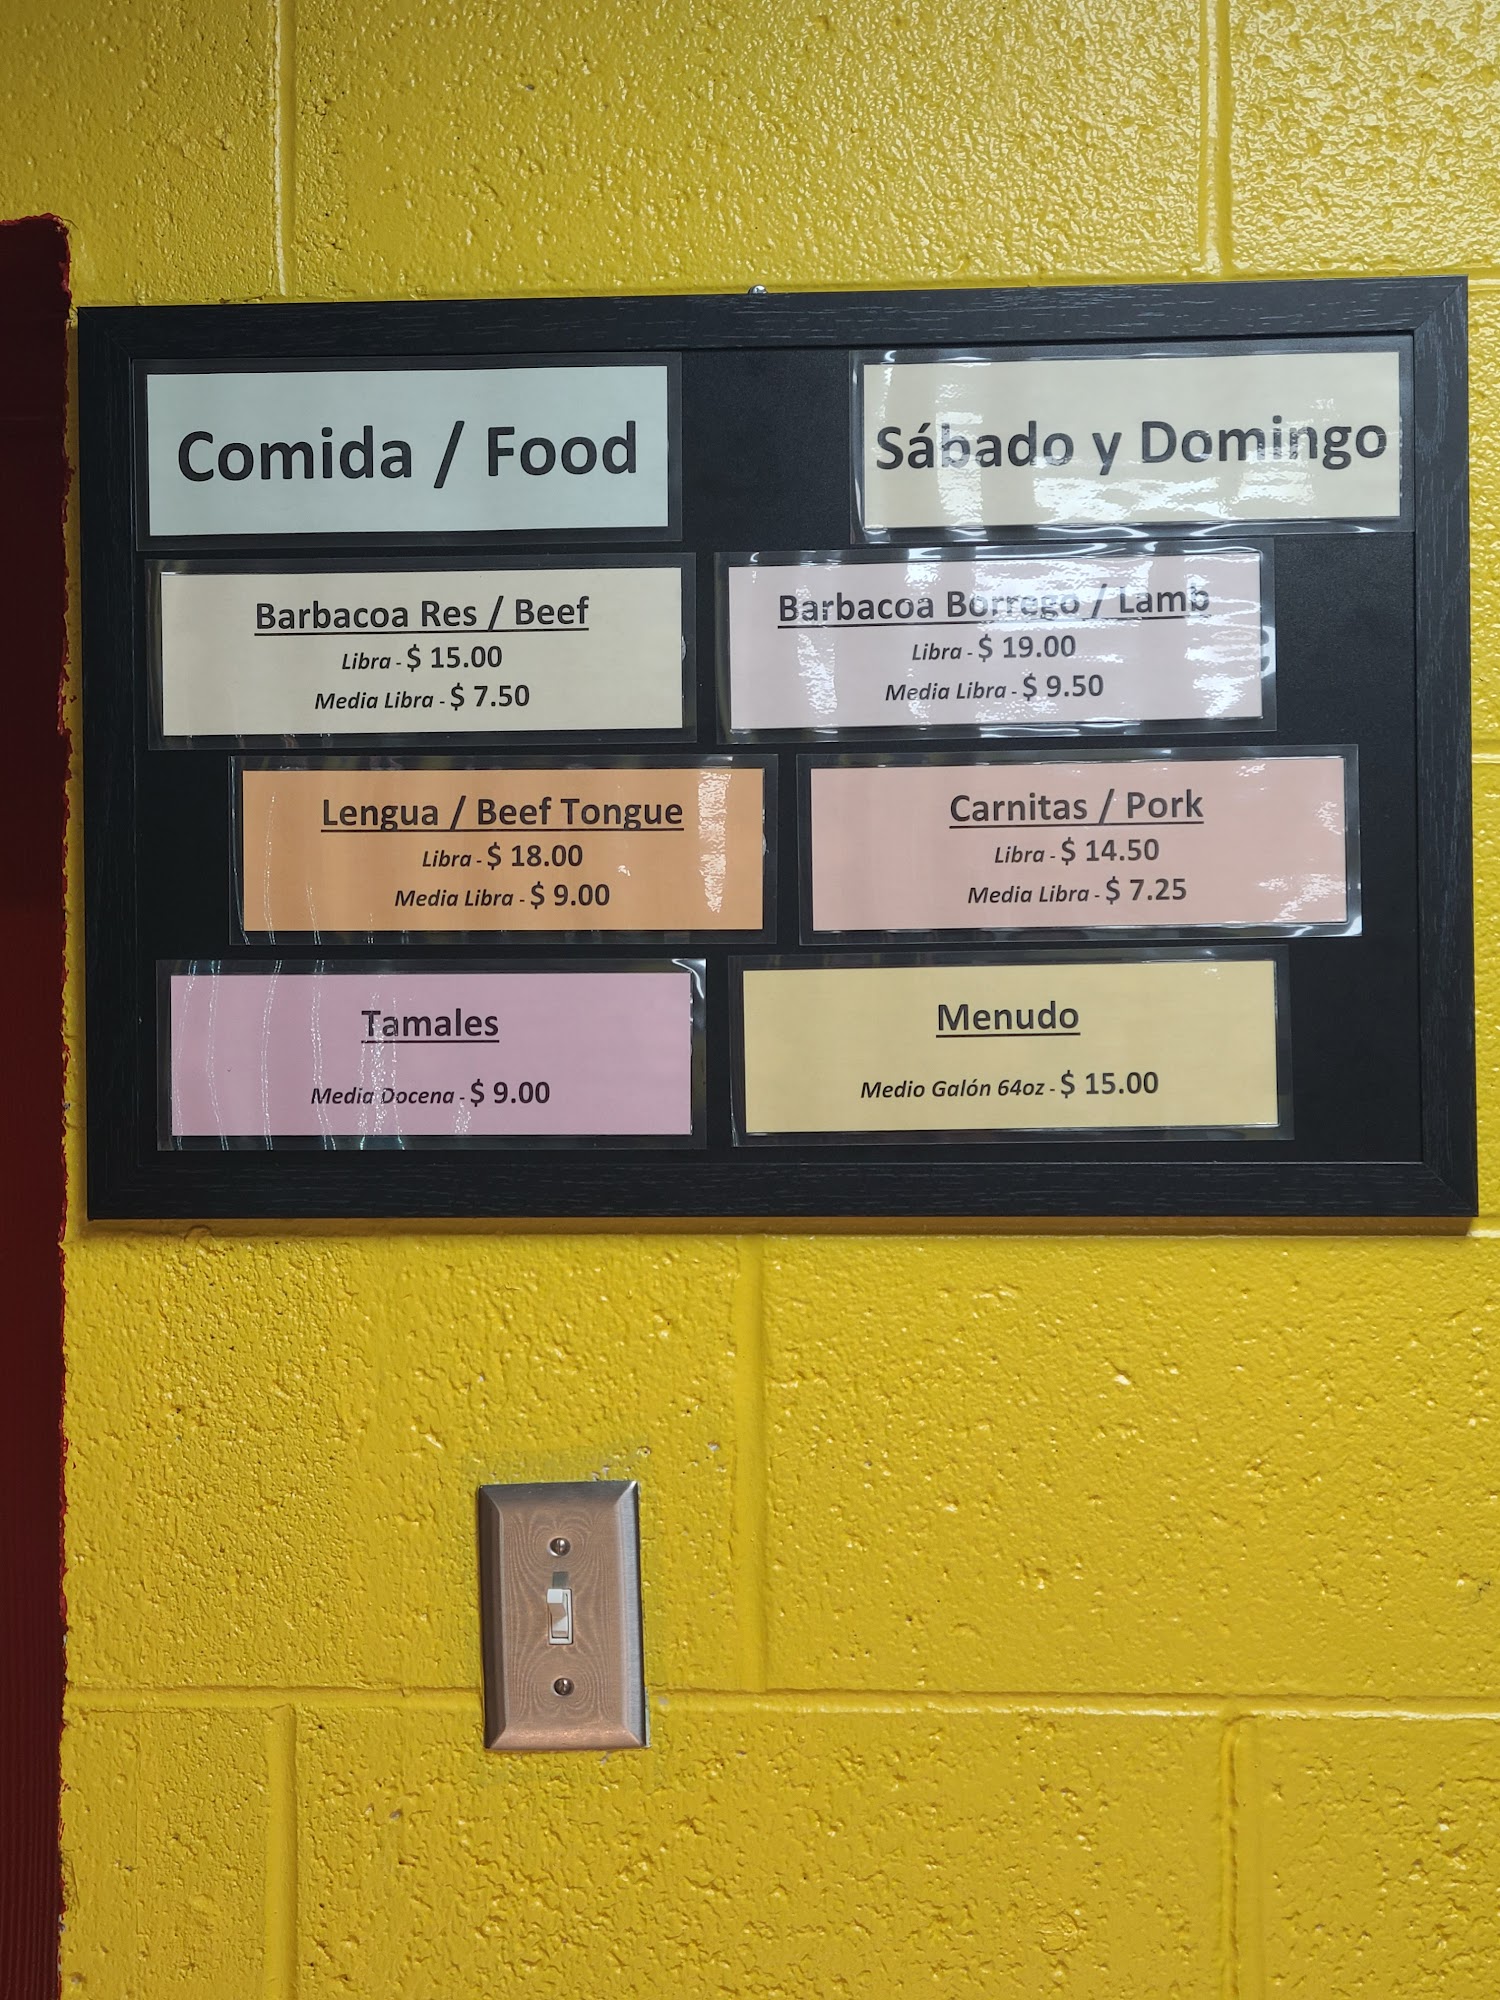 Comida / Food
Sábado y Domingo
Barbacoa Res / Beef
Libra - $ 15.00
Media Libra - $ 7.50
Barbacoa Borrego / Lamb
Libra - $ 19.00
Media Libra - $ 9.50
Lengua / Beef Tongue
Libra - $ 18.00
Media Libra - $ 9.00
Carnitas / Pork
Libra - $ 14.50
Media Libra - $ 7.25
Tamales
Media Docena - $ 9.00
Menudo
Medio Galón 64oz - $ 15.00